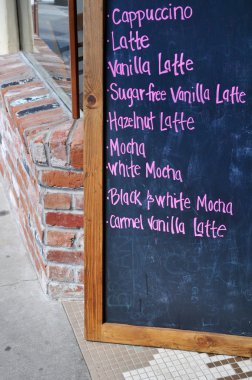 · Cappuccino
· Latte
· Vanilla Latte
· Sugar-free Vanilla Latte
· Hazelnut Latte
· Mocha
· White Mocha
· Black & White Mocha
· Carmel Vanilla Latte